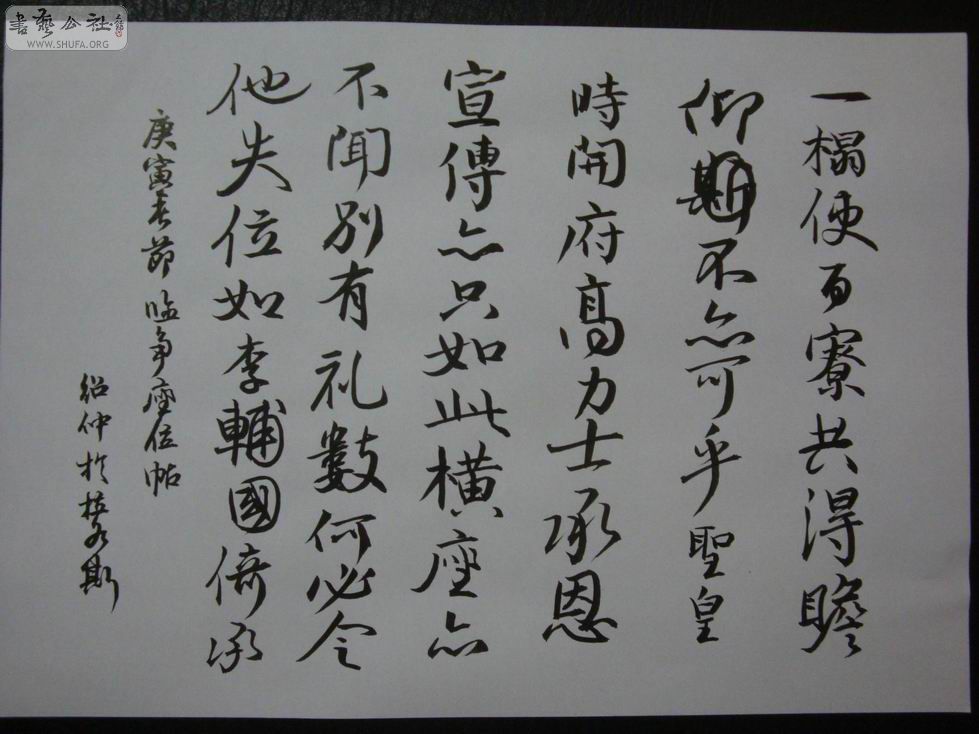 一榻使百寮共得瞻
仰斯不亦可乎聖皇
時開府高力士承恩
宣傳亦只如此橫座亦
不聞別有礼數何必令
他失位如李輔國倚承
庚寅春節臨爭座位帖
紹仲於
書藝公社
WWW.SHUFA.ORG